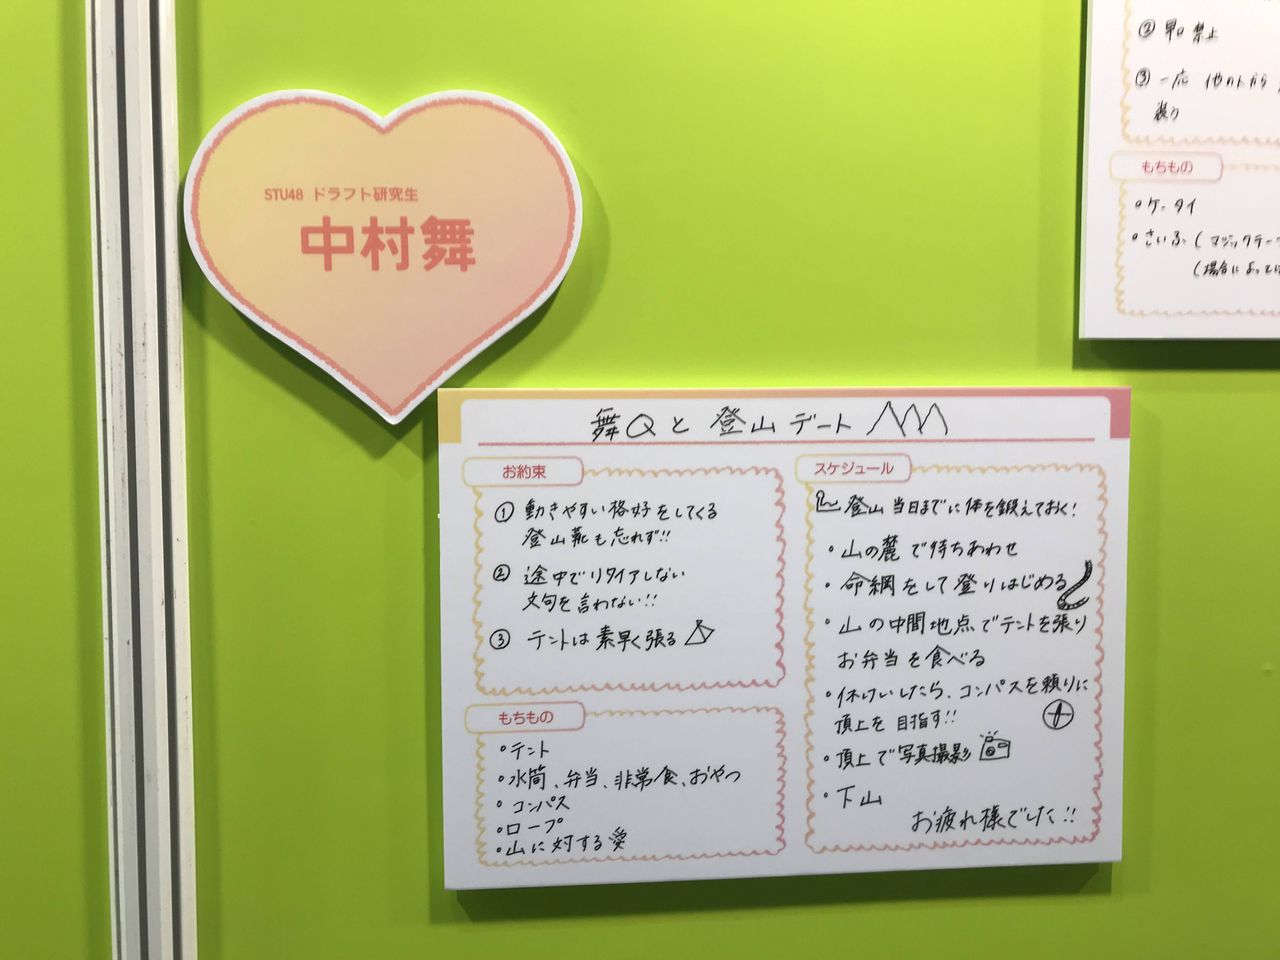 STU48 ドラフト研究生
中村舞
舞Qと登山デート
お約束
① 動きやすい格好をしてくる
登山靴も忘れず!!
② 途中でリタイアしない
文句を言わない!!
③ テントは素早く張る
もちもの
・テント
・水筒、弁当、非常食、おやつ
・コンパス
・ロープ
・山に対する愛
スケジュール
登山当日までに体を鍛えておく!
・山の麓で待ちあわせ
・命綱をして登りはじめる
・山の中間地点でテントを張り
お弁当を食べる
・休けいしたら、コンパスを頼りに
頂上を目指す!!
・頂上で写真撮影
・下山
お疲れ様でした!!
② 早口禁止
③ 一応 他の人から
装う
もちもの
・ケータイ
・さいふ(マジックテー
(場合によっては